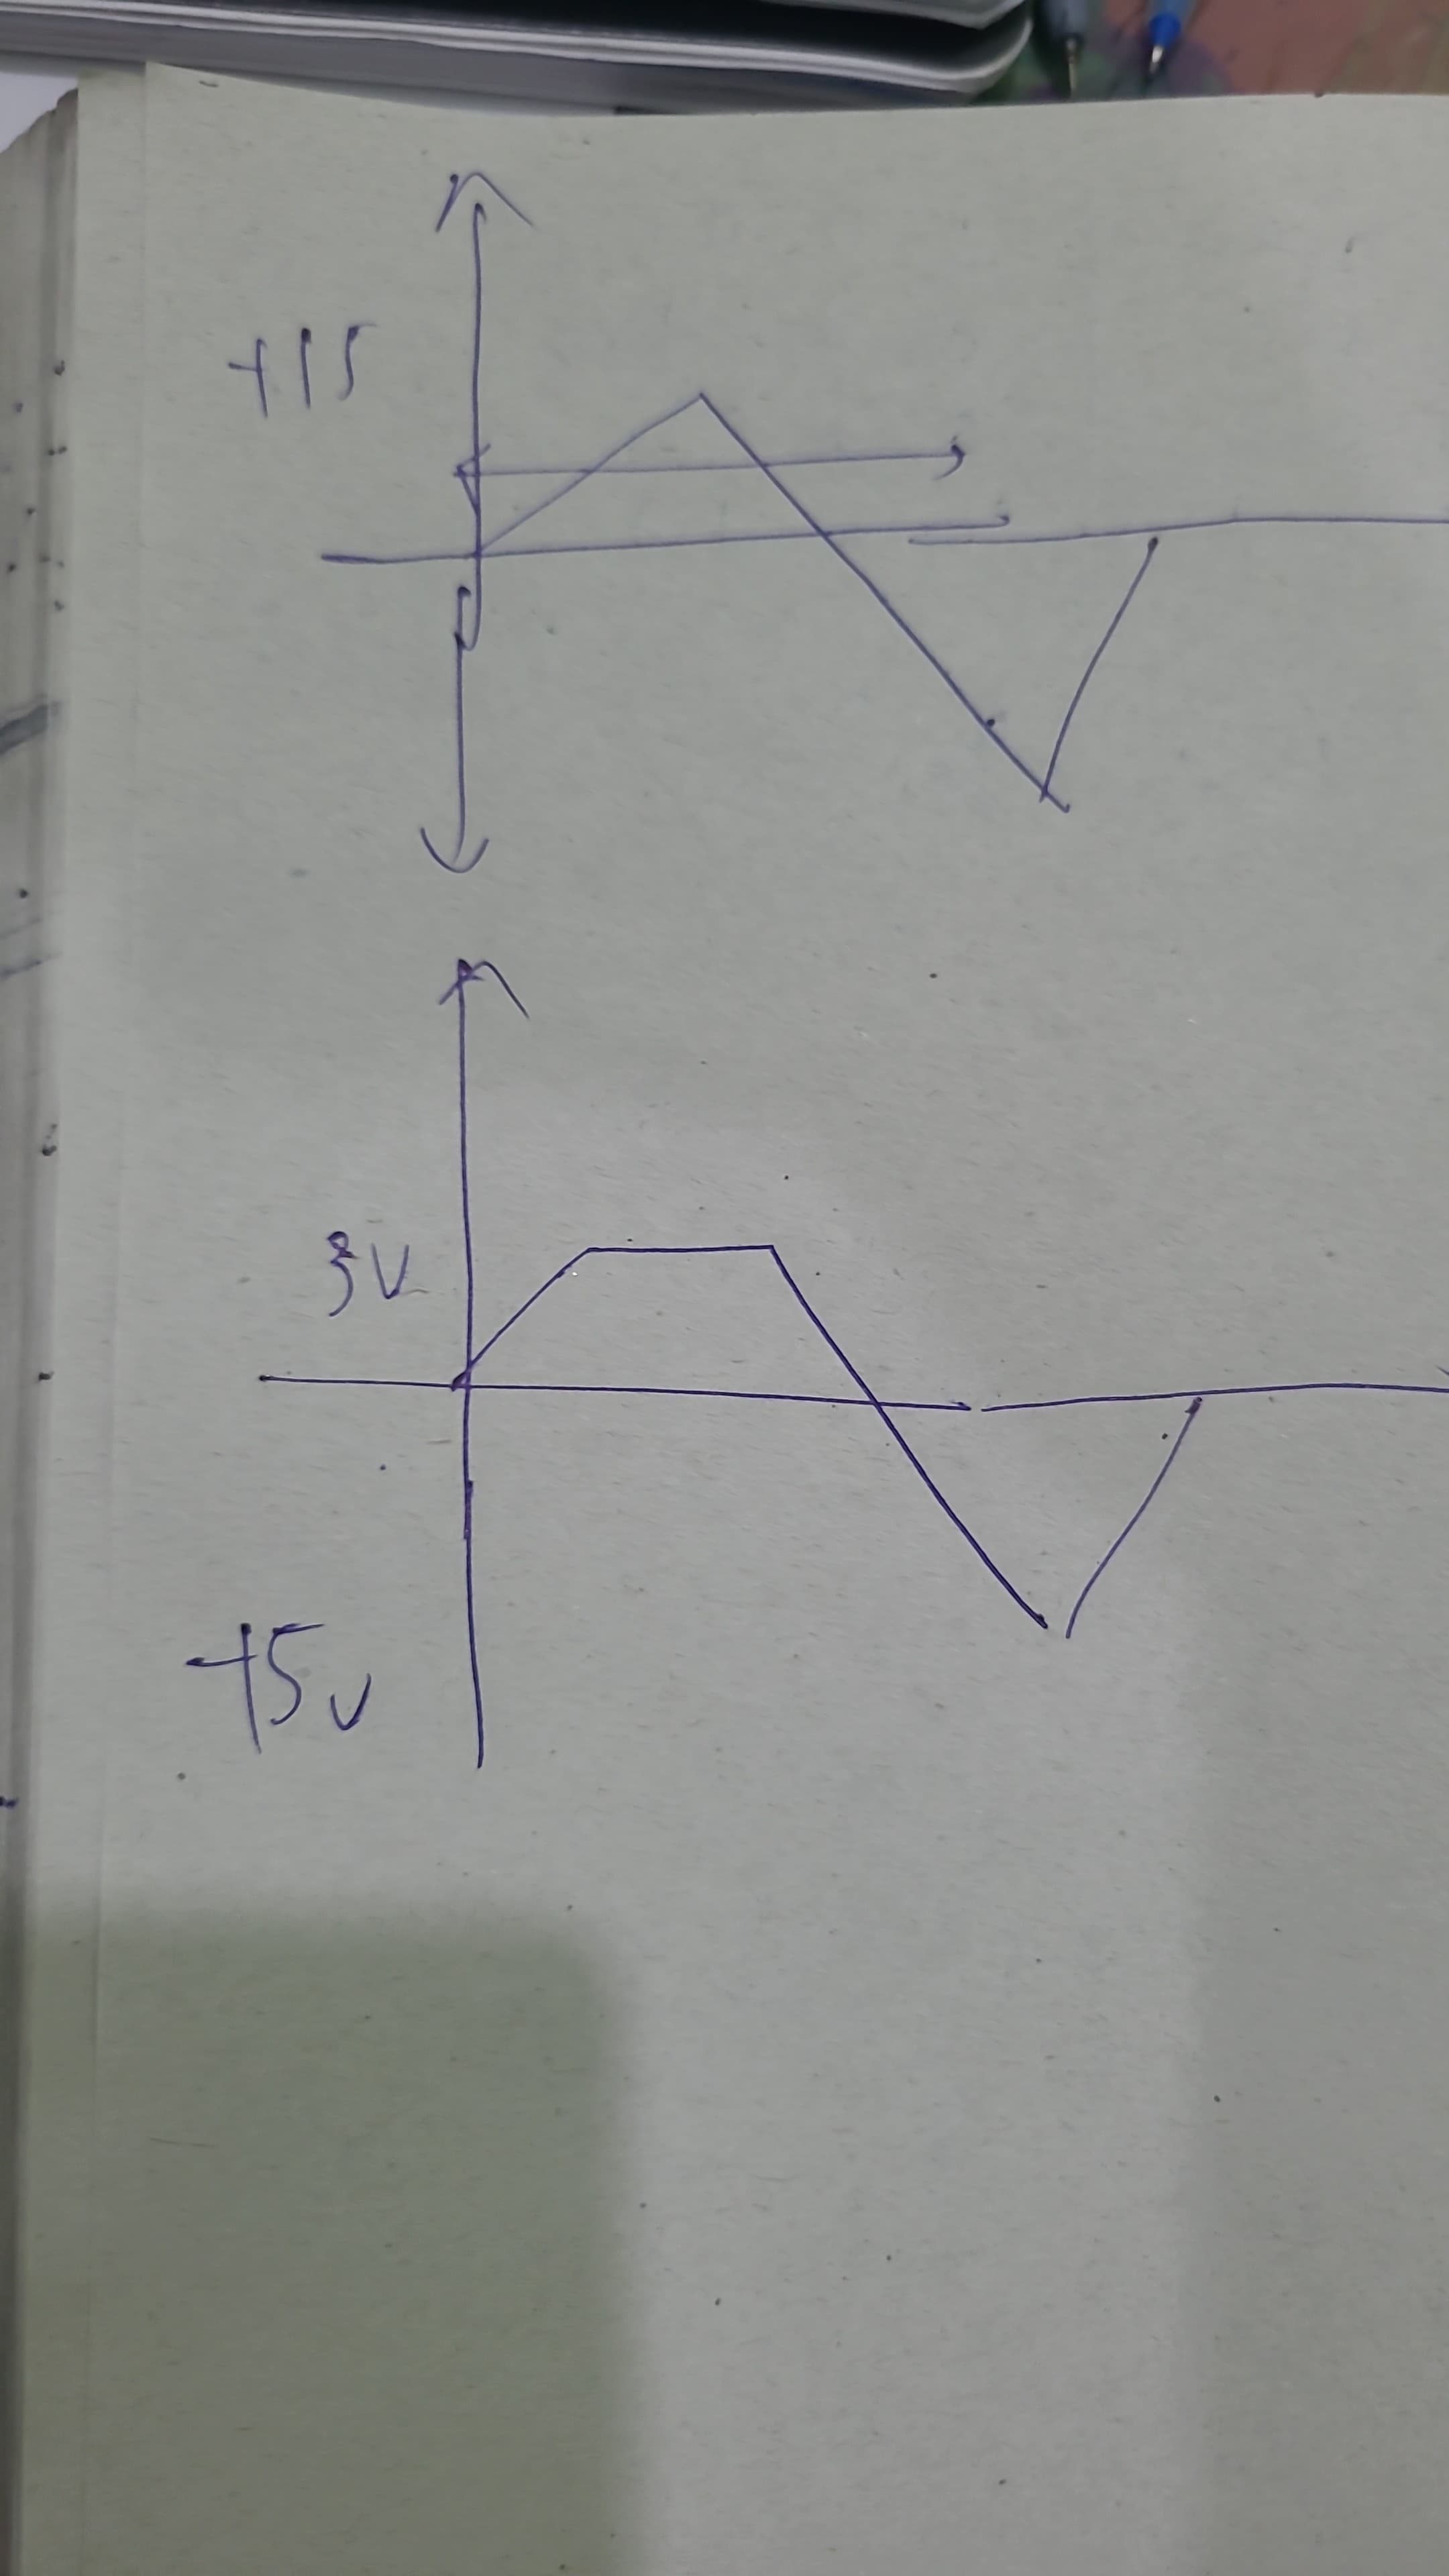 +15
3V
+5V